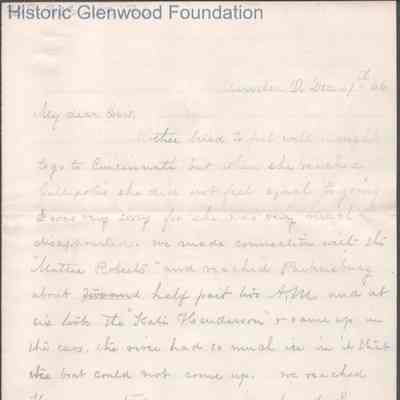 Historic Glenwood Foundation
Dec 17th 66
My dear
Mother tried to get well enough
to go to Cincinnati but when she reached
Gallipolis she did not feel equal to going
I was very sorry for she was very much
disappointed. we made connection with the
"Mattie Roberts" and reached Parkersburg
about half past two A.M. and at
six took the "Katie Henderson" & came up in
the cars, the river had so much ice in it that
the boat could not come up. we reached